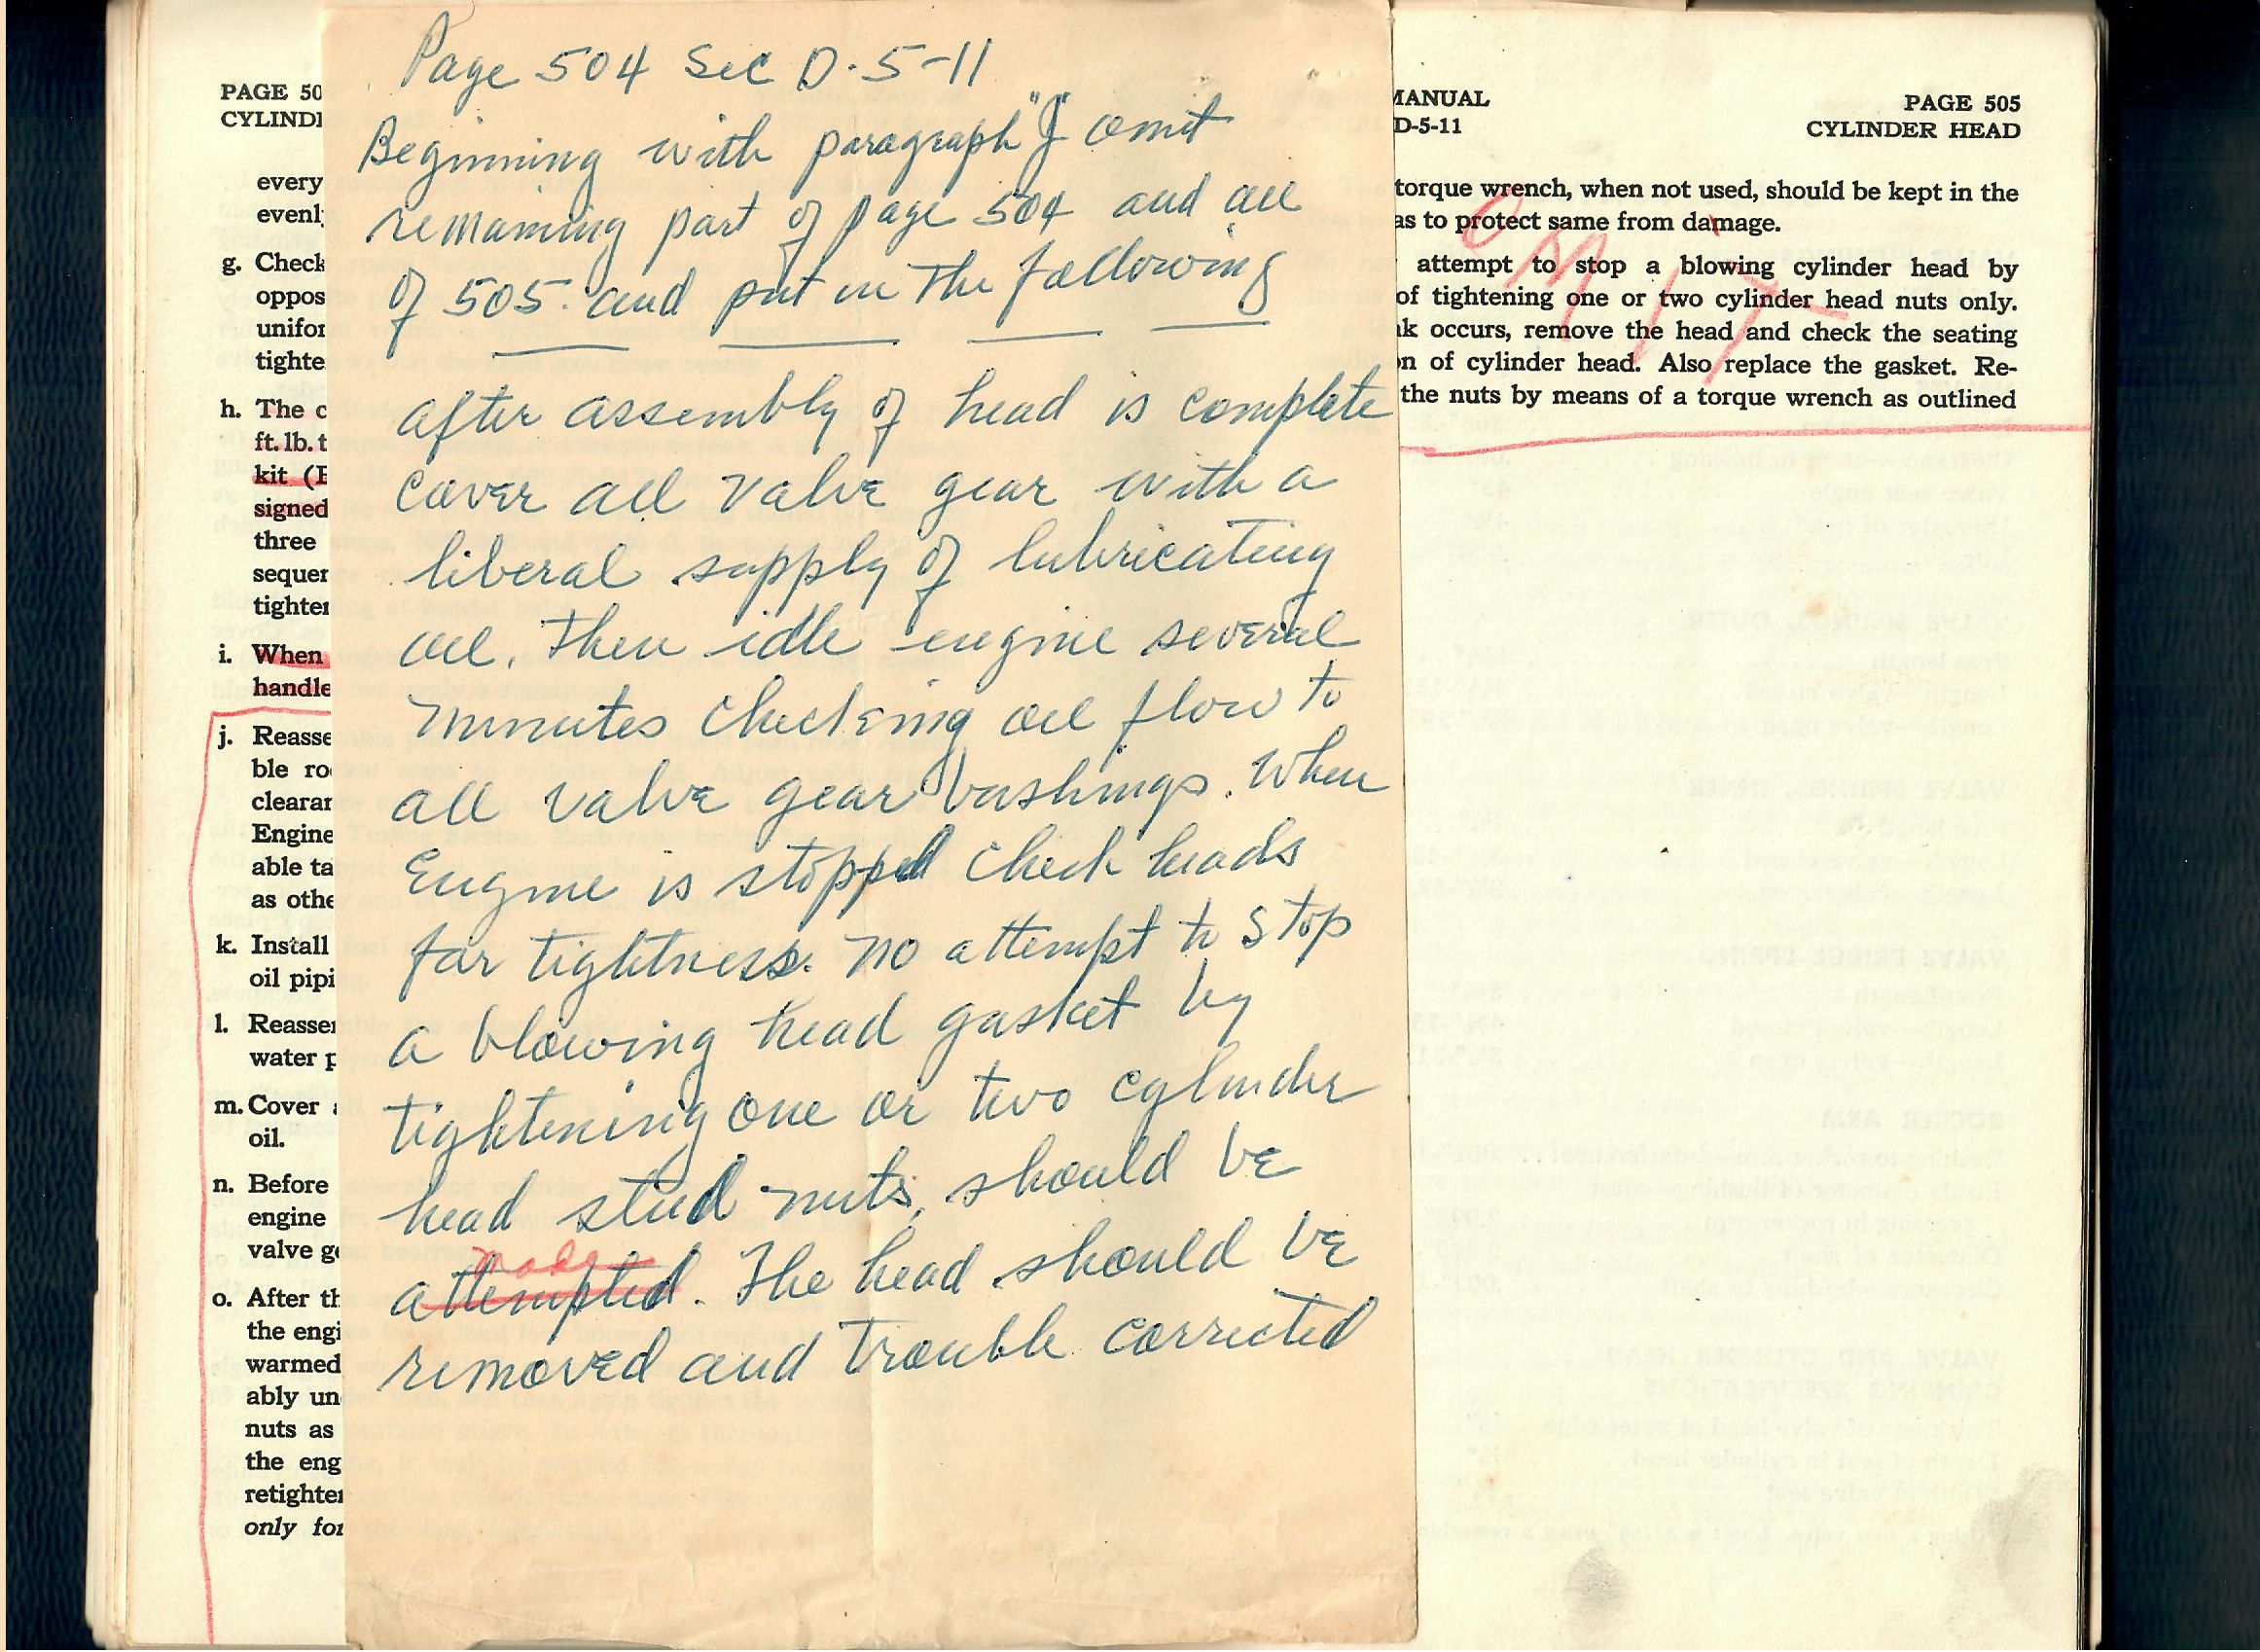 PAGE 50
CYLIND
every
evenl
g. Check
oppos
unifor
tighte
h. The c
ft. lb. t
kit (E
signed
three
sequer
tighter
i. When
handle
j. Reasse
ble ro
clearar
Engine
able ta
as othe
k. Install
oil pipi
l. Reasser
water p
m. Cover a
oil.
n. Before
engine
valve ge
o. After th
the engi
warmed
ably un
nuts as
the eng
retighter
only for
Page 504 Sec D-5-11
Beginning with paragraph "J" omit
remaining part of page 504 and all
of 505. and put in the following
after assembly of head is complete
cover all valve gear with a
liberal supply of lubricating
oil. Then idle engine several
minutes checking oil flow to
all valve gear bushings. When
Engine is stopped check heads
for tightness. No attempt to stop
a blowing head gasket by
tightening one or two cylinder
head stud nuts, should be
made
attempted. The head should be
removed and trouble corrected
MANUAL
D-5-11
PAGE 505
CYLINDER HEAD
torque wrench, when not used, should be kept in the
as to protect same from damage.
attempt to stop a blowing cylinder head by
of tightening one or two cylinder head nuts only.
k occurs, remove the head and check the seating
n of cylinder head. Also replace the gasket. Re-
the nuts by means of a torque wrench as outlined
OMIT